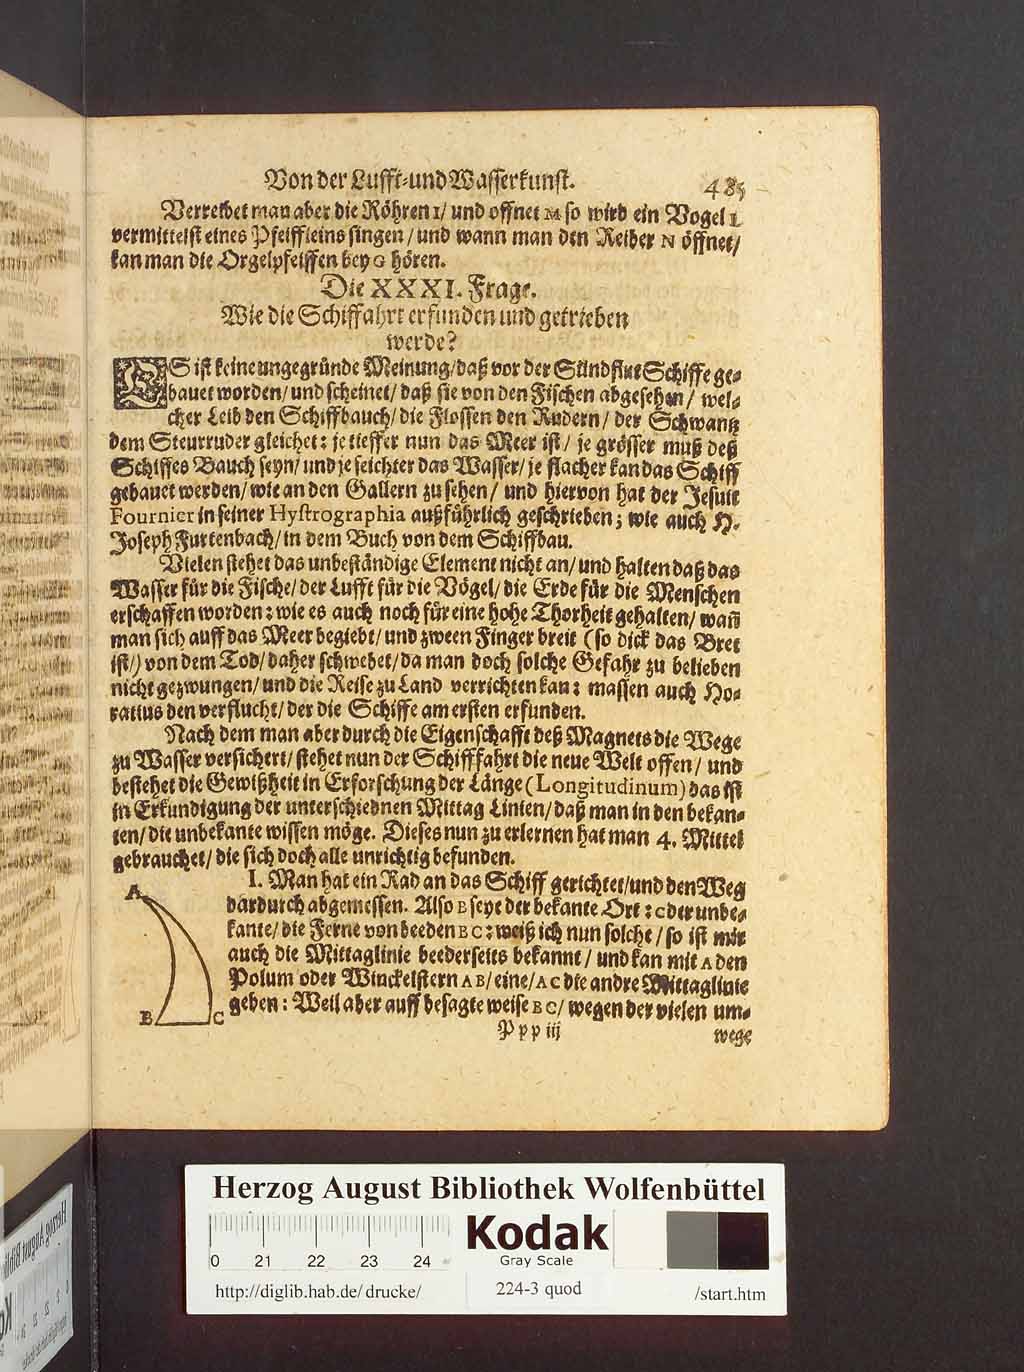 Von der Lufft-und Wasserkunst. 485
Verreibet man aber die Röhren I/ und offnet M so wird ein Vogel L
vermittelst eines Pfeiffleins singen/ und wann man den Reiber N öffnet/
kan man die Orgelpfeiffen bey G hören.
Die XXXI. Frage.
Wie die Schiffahrt erfunden und getrieben
werde?
ES ist keine ungegründe Meinung/ daß vor der Sündflut Schiffe ge-
bauet worden/ und scheinet/ daß sie von den Fischen abgesehen/ wel-
cher Leib den Schiffbauch/ die Flossen den Rudern/ der Schwantz
dem Steurruder gleichet: je tieffer nun das Meer ist/ je grösser muß deß
Schiffes Bauch seyn/ und je seichter das Wasser/ je flacher kan das Schiff
gebauet werden/ wie an den Gallern zu sehen/ und hiervon hat der Jesuit
Fournier in seiner Hystrographia außführlich geschrieben; wie auch H.
Joseph Furtenbach/ in dem Buch von dem Schiffbau.
Vielen stehet das unbeständige Element nicht an/ und halten daß das
Wasser für die Fische/ der Lufft für die Vögel/ die Erde für die Menschen
erschaffen worden: wie es auch noch für eine hohe Thorheit gehalten/ wañ
man sich auff das Meer begiebt/ und zween Finger breit (so dick das Bret
ist/) von dem Tod/ daher schwebet/ da man doch solche Gefahr zu belieben
nicht gezwungen/ und die Reise zu Land verrichten kan: massen auch Ho-
ratius den verflucht/ der die Schiffe am ersten erfunden.
Nach dem man aber durch die Eigenschafft deß Magnets die Wege
zu Wasser versichert/ stehet nun der Schifffahrt die neue Welt offen/ und
bestehet die Gewißheit in Erforschung der Länge (Longitudinum) das ist
in Erkundigung der unterschiednen Mittag Linien/ daß man in den bekan-
ten/ die unbekante wissen möge. Dieses nun zu erlernen hat man 4. Mittel
gebrauchet/ die sich doch alle unrichtig befunden.
I. Man hat ein Rad an das Schiff gerichtet/ und den Weg
dardurch abgemessen. Also B seye der bekante Ort: C der unbe-
kante/ die Ferne von beeden BC: weiß ich nun solche/ so ist mir
auch die Mittaglinie beederseits bekannt/ und kan mit A den
Polum oder Winckelstern AB/ eine/ AC die andre Mittaglinie
geben: Weil aber auff besagte weise BC/ wegen der vielen um-
A
B C
Ppp iij wege
Herzog August Bibliothek Wolfenbüttel
Kodak
Gray Scale
0 21 22 23 24
http://diglib.hab.de/drucke/ 224-3 quod /start.htm